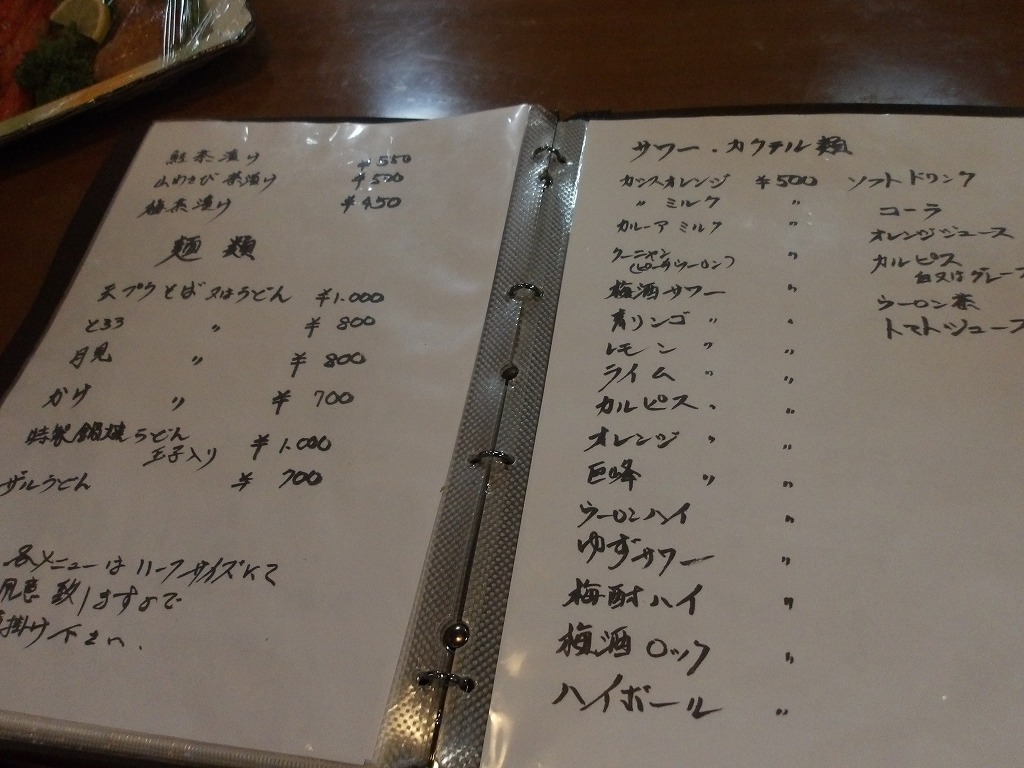 鮭茶漬け ¥550
山わさび茶漬け ¥500
梅茶漬け ¥450
麺類
天プラそば又はうどん ¥1.000
とろろ 〃 ¥800
月見 〃 ¥800
かけ 〃 ¥700
特製鍋焼うどん
玉子入り ¥1.000
ザルうどん ¥700
各メニューはハーフサイズにて
用意致しますので
掛け下さい.
サワー・カクテル類
カシスオレンジ ¥500
〃 ミルク 〃
カルーアミルク 〃
クーニャン
(ピーチウーロン) 〃
梅酒サワー 〃
青リンゴ 〃 〃
レモン 〃 〃
ライム 〃 〃
カルピス 〃 〃
オレンジ 〃 〃
巨峰 〃 〃
ウーロンハイ 〃
ゆずサワー 〃
梅酎ハイ 〃
梅酒ロック 〃
ハイボール 〃
ソフトドリンク
コーラ
オレンジジュース
カルピス
白又はグレープ
ウーロン茶
トマトジュース